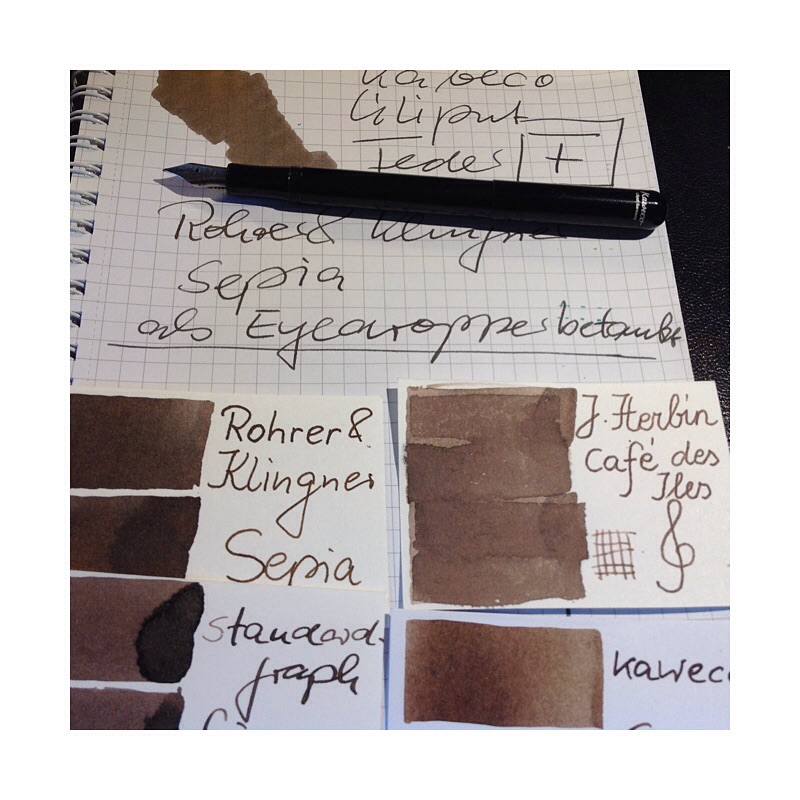 Kaweco
Liliput
Feder +
Kaweco
Rohrer & Klingner
Sepia
als Eyedropper betankt
Rohrer &
Klingner
Sepia
J. Herbin
Café des
Iles
Standard-
graph
Kaweco